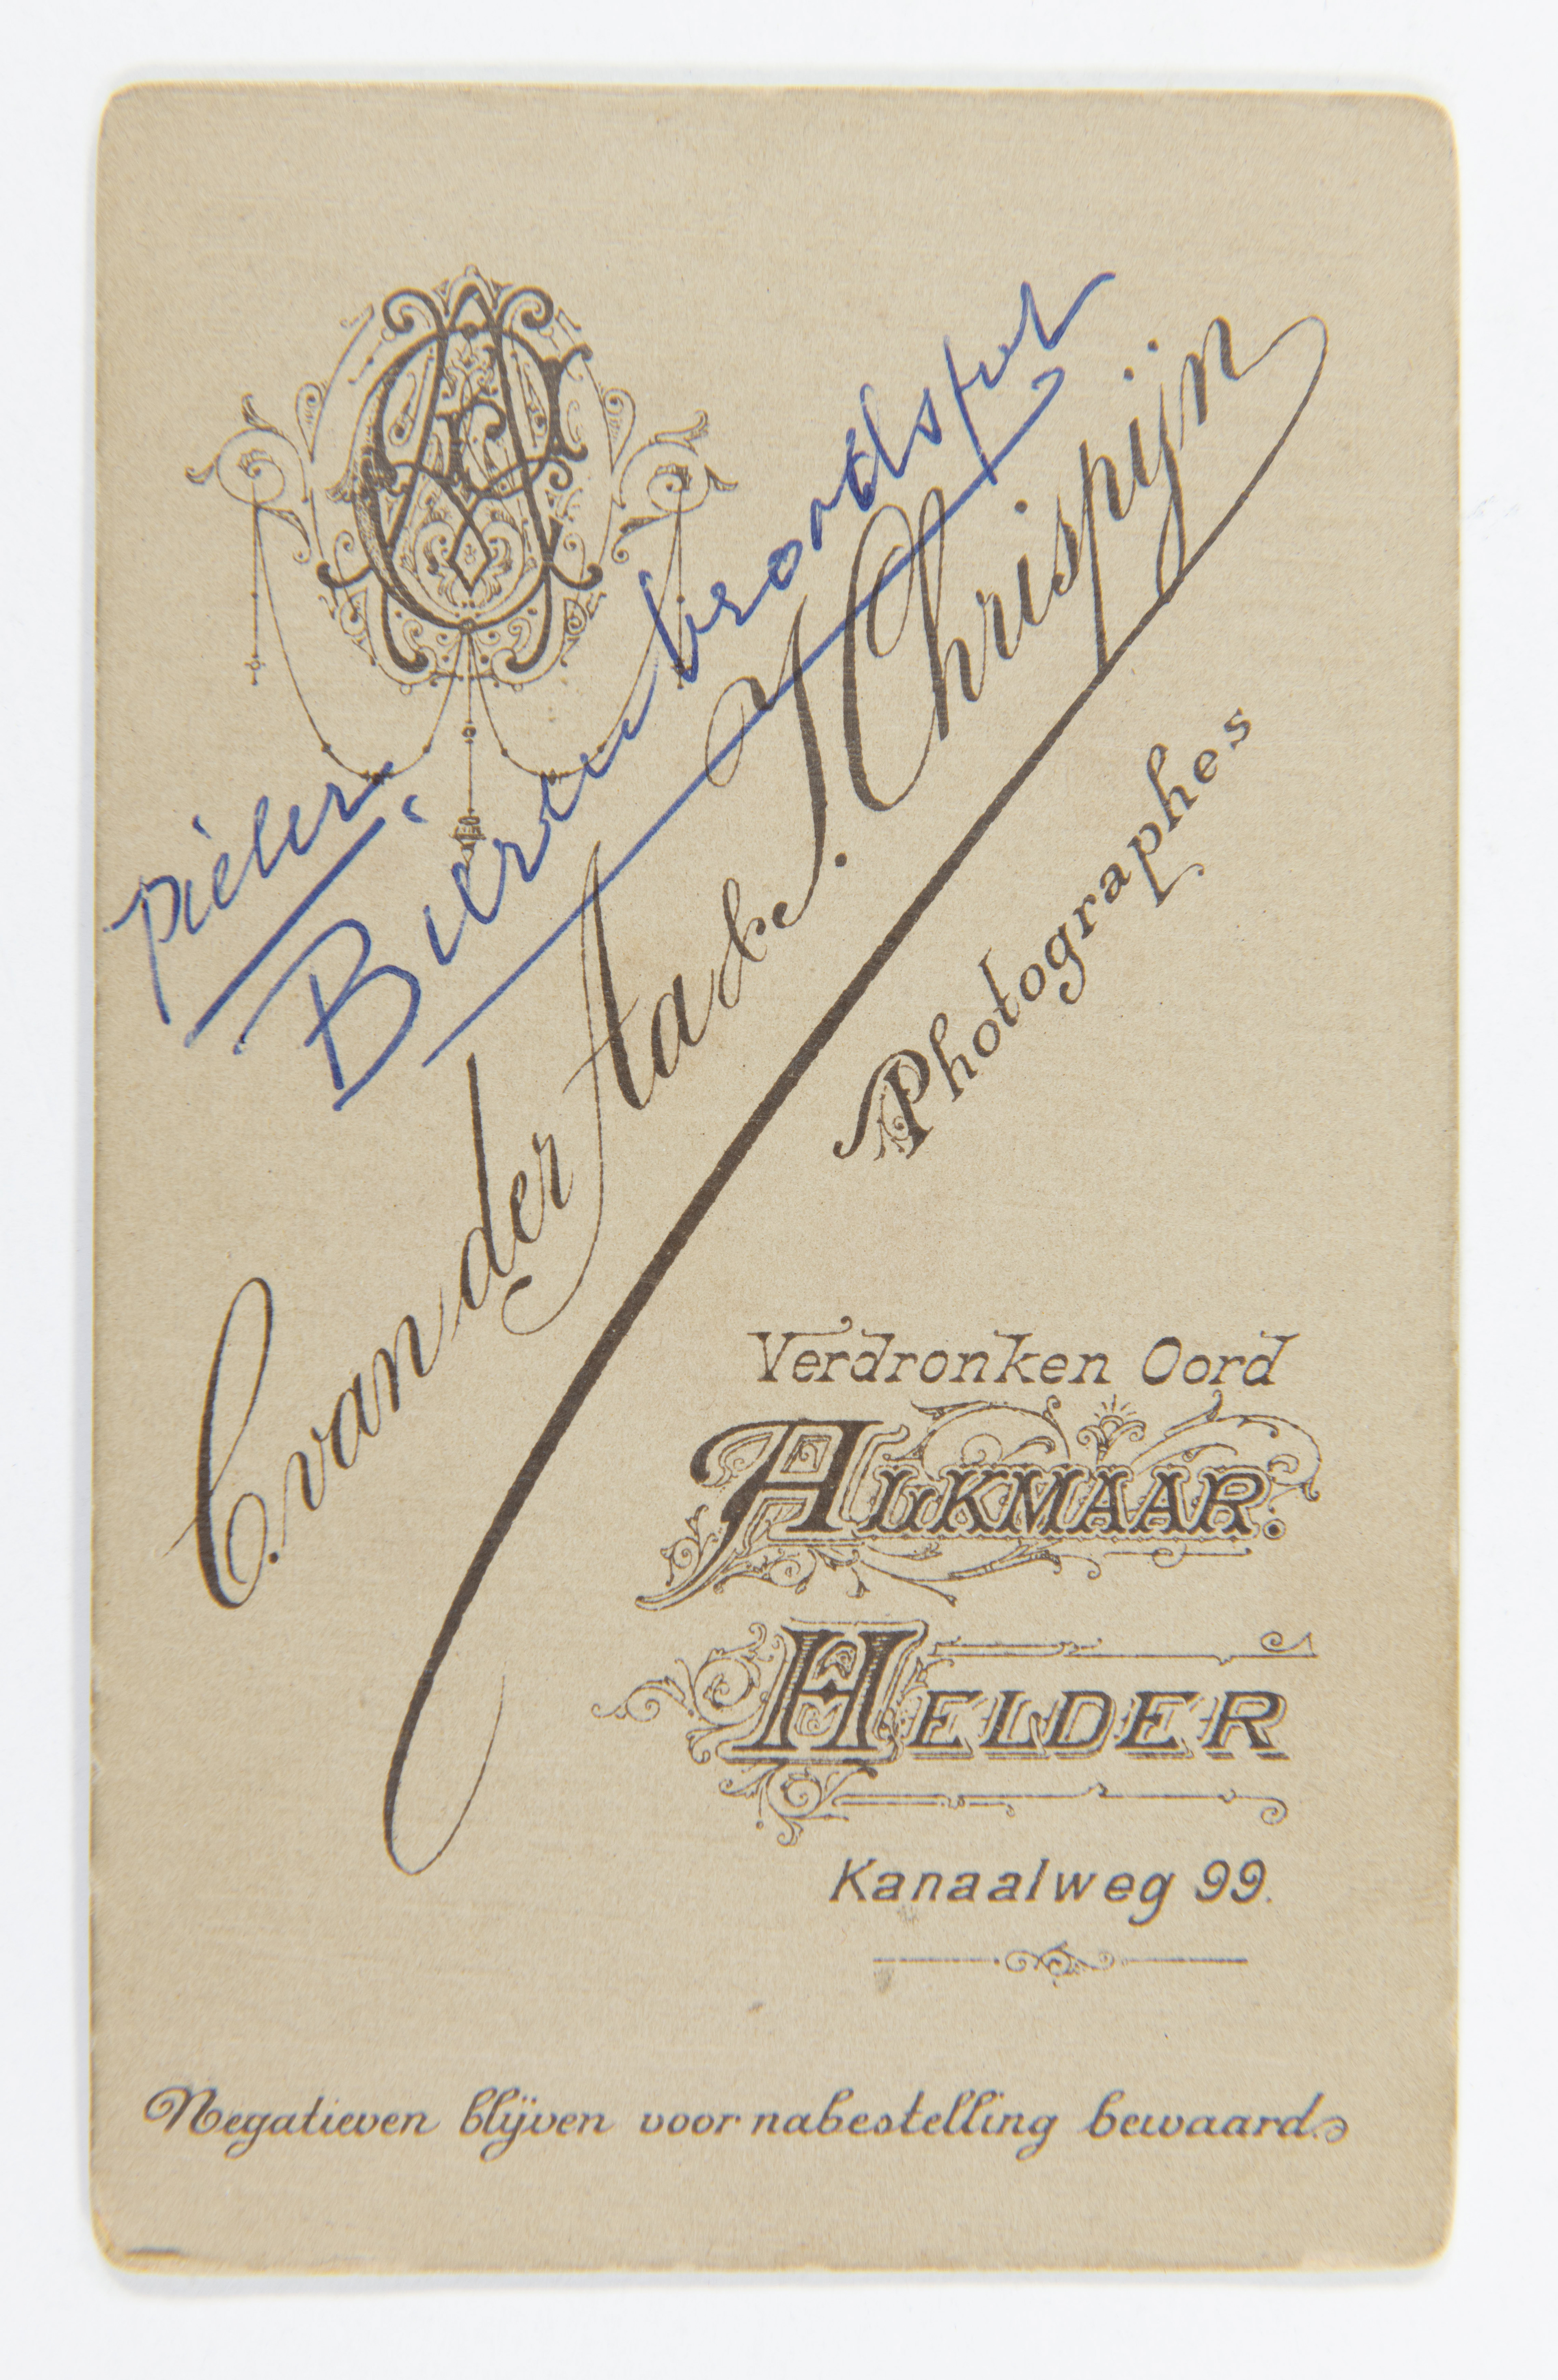 Pieter
Bierenbroodspot
C. van der Aa & J. Chrispijn
Photographes
Verdronken Oord
ALKMAAR.
HELDER
Kanaalweg 99.
Negatieven blijven voor nabestelling bewaard.